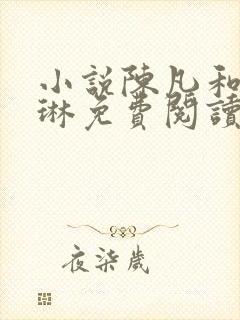 小說陳凡和
琳免費閱讀
夜柒歲